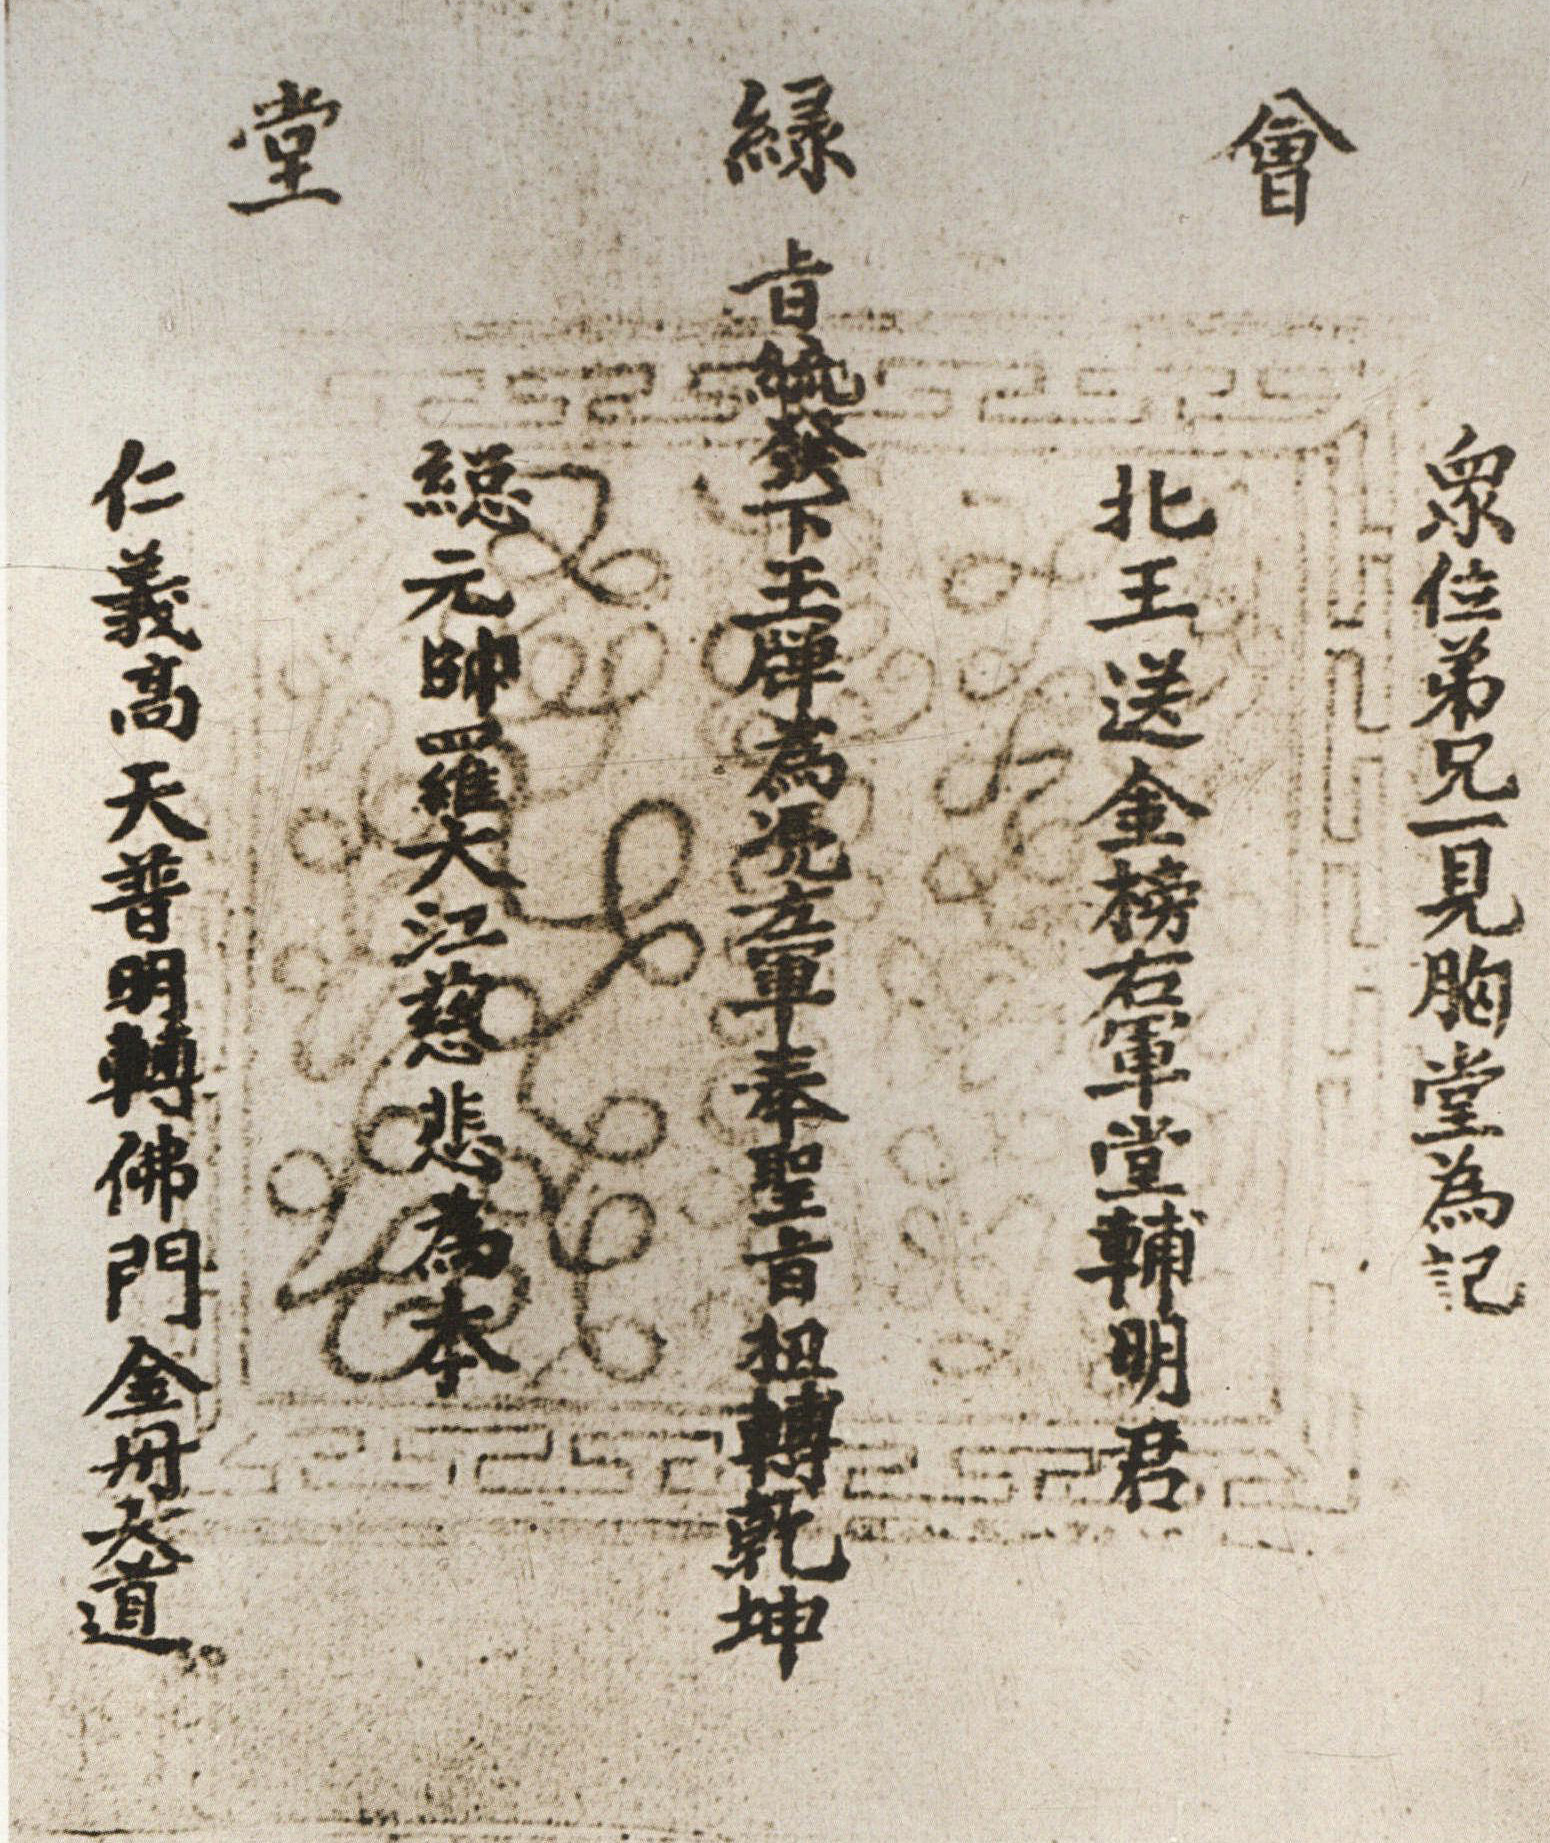 會緑堂
衆位弟兄一見胸堂為記
北王送金榜右軍堂輔明君
旨統發下王牌為凴左軍奉聖旨扭轉乾坤
緫元帥羅大江慈悲為本
仁義高天普明轉佛門金丹大道